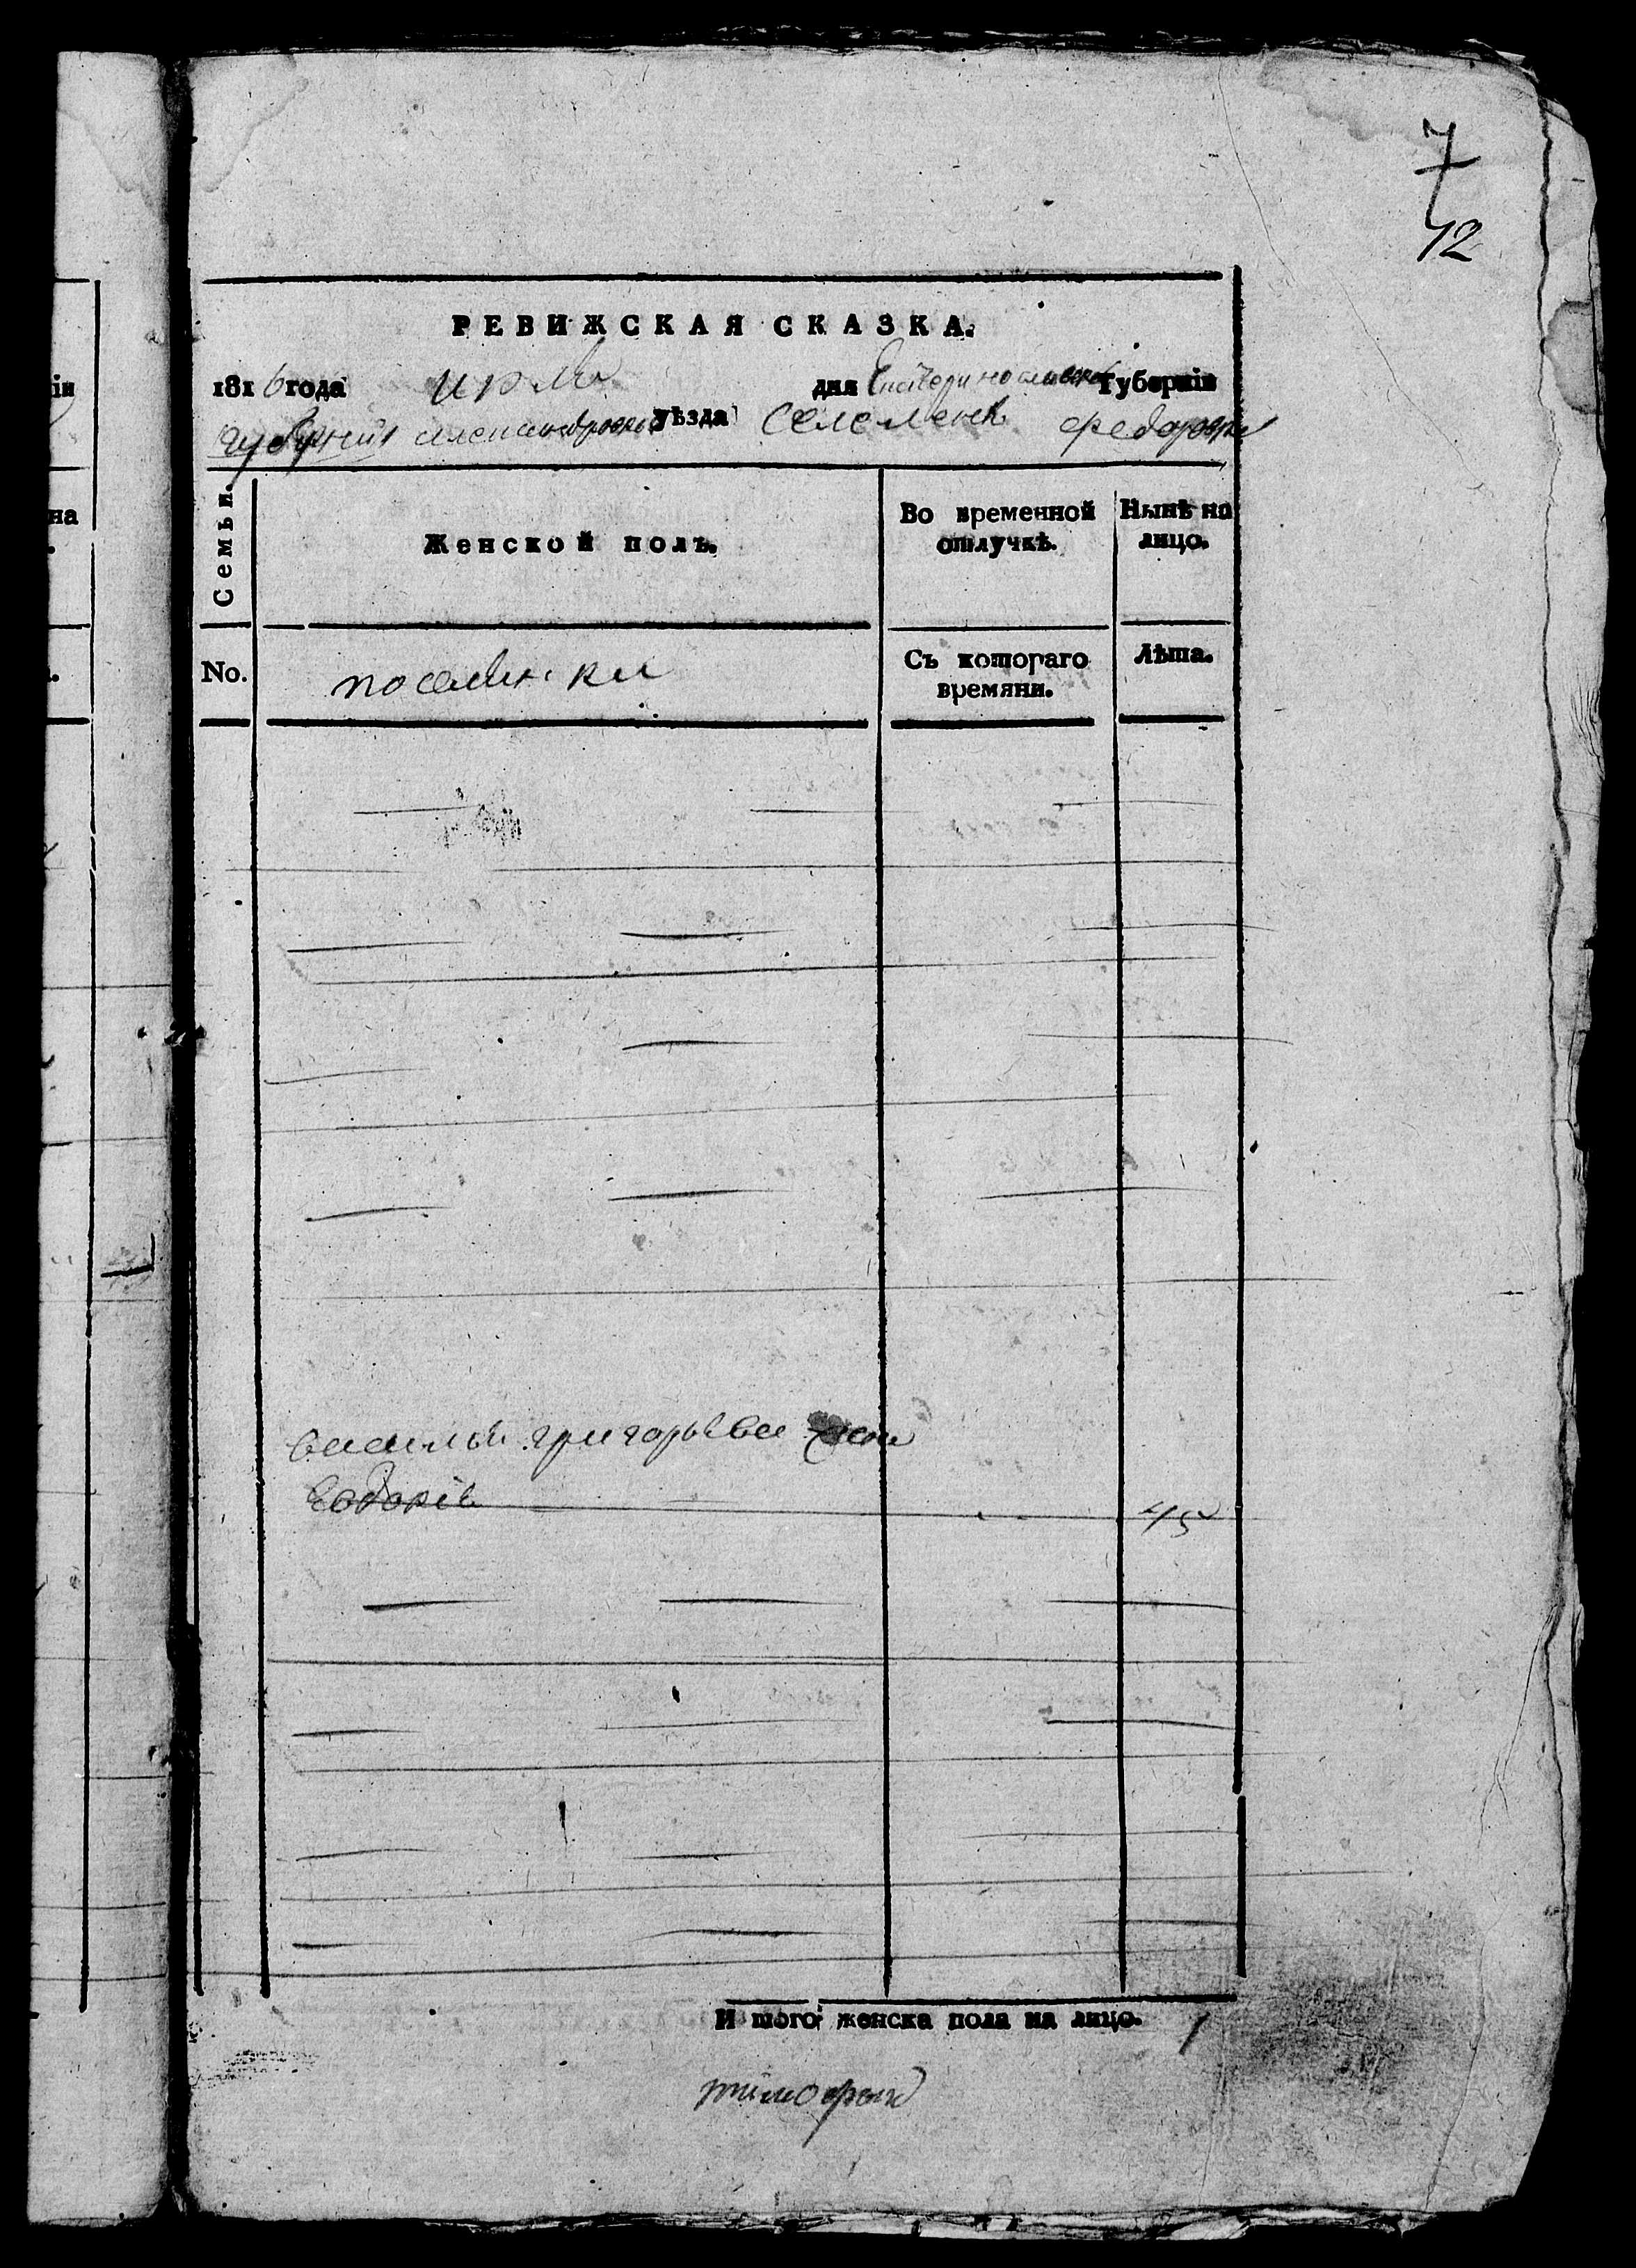 7
12
РЕВИЖСКАЯ СКАЗКА.
1816 года июля дня Екатеринославской Губерніи
губерніи александровскаго уѣзда федоровки
Семьи.
Женской полъ.
Во временной отлучкѣ.
Нынѣ на лицо.
No.
поселянки
Съ котораго времяни.
Лѣта.
василья григорьева жена
Евдокія 45
И того женска пола на лицо. 1
тимофей